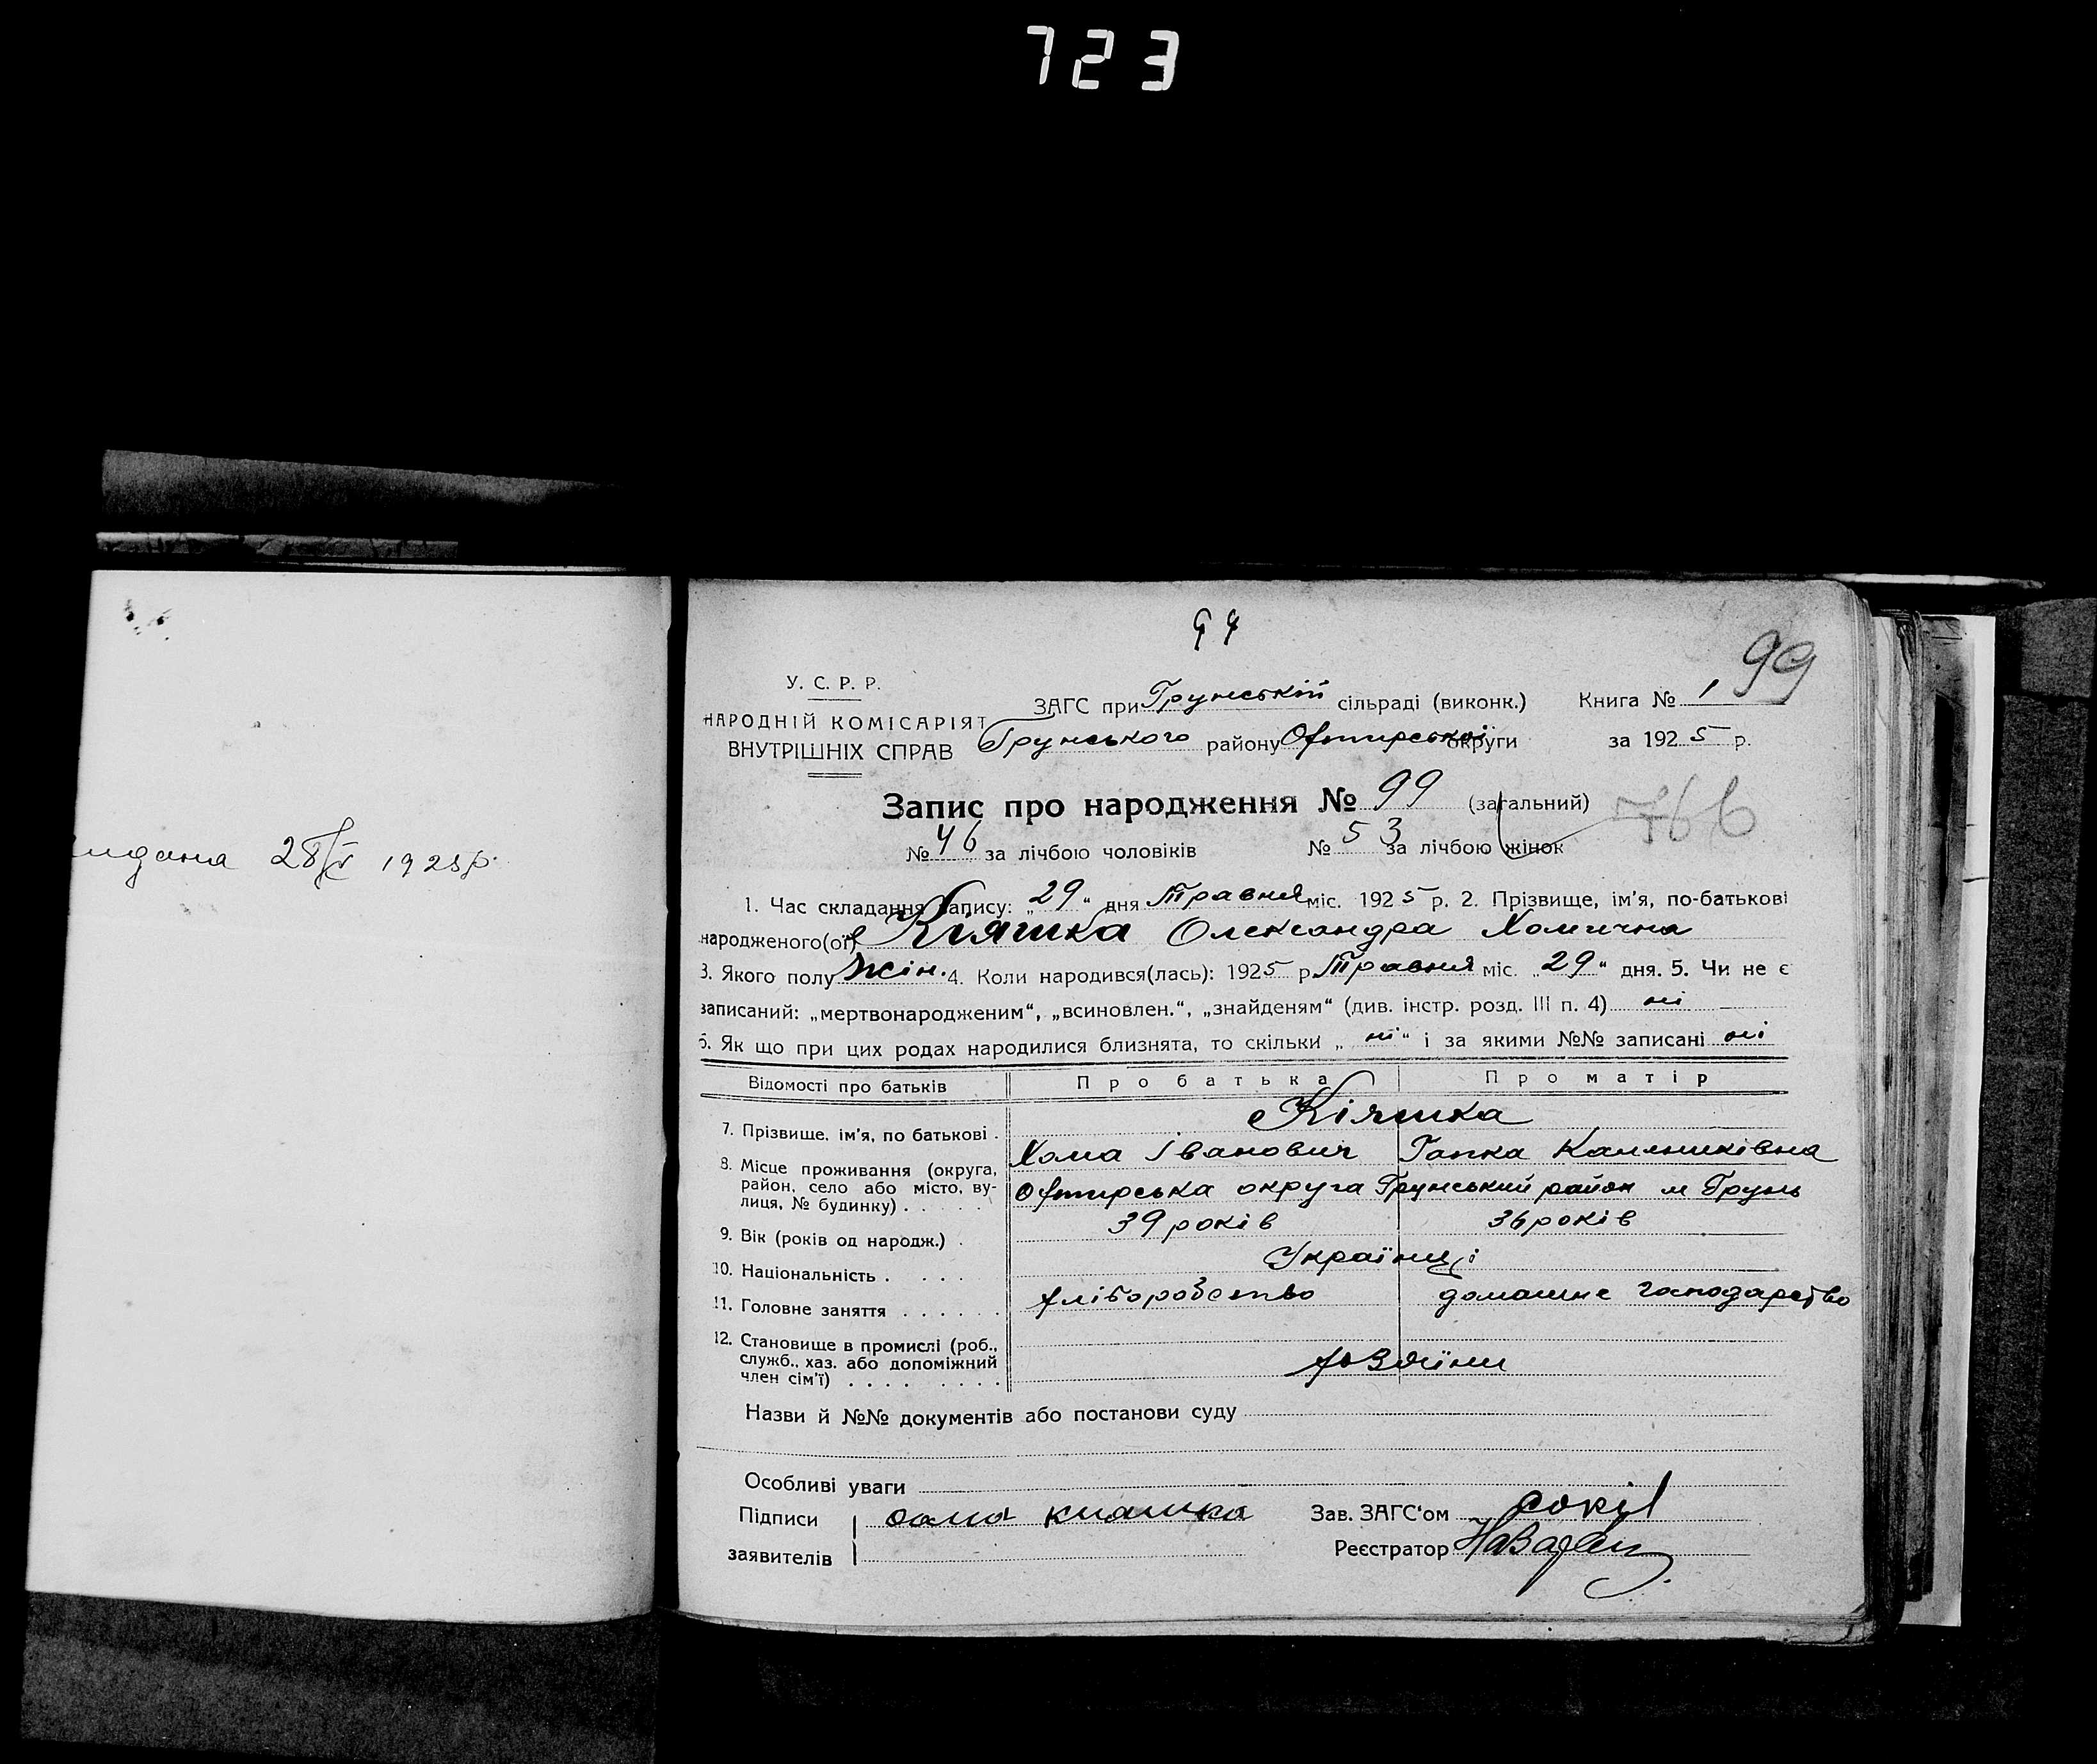 723
99
99
У. С. Р. Р.
НАРОДНІЙ КОМІСАРІЯТ
ВНУТРІШНІХ СПРАВ
ЗАГС при Грунській сільраді (виконк.) Книга № 1
Грунського району Охтирської округи за 1925 р.
Запис про народження № 99 (загальний)
№ 46 за лічбою чоловіків № 53 за лічбою жінок
766
идана 28/V 1925 р.
1. Час складання запису: „29“ дня Травня міс. 1925 р. 2. Прізвище, ім'я, по-батькові
народженого(ої) Кіяшка Олександра Хомична
3. Якого полу жін. 4. Коли народився(лась): 1925 р. Травня міс. „29“ дня. 5. Чи не є
записаний: „мертвонародженим“, „всиновлен.“, „знайденям“ (див. інстр. розд. III п. 4) ні
6. Як що при цих родах народилися близнята, то скільки „ні“ і за якими №№ записані ні
Відомості про батьків Про батька Про матір
Кіяшка
7. Прізвище, ім'я, по батькові . Хома Іванович Гапка Калениківна
8. Місце проживання (округа,
район, село або місто, ву-
лиця, № будинку) . . . . . Охтирська округа Грунський район м Грунь
9. Вік (років од народж.) . 39 років 36 років
10. Національність . . . . Українці
11. Головне заняття . . . . . . хліборобство домашнє господарство
12. Становище в промислі (роб.,
служб., хаз. або допоміжний
член сім'ї) . . . . . . . . хозяїни
Назви й №№ документів або постанови суду
Особливі уваги
Підписи киашка Зав. ЗАГС'ом Сокіл
заявителів Реєстратор